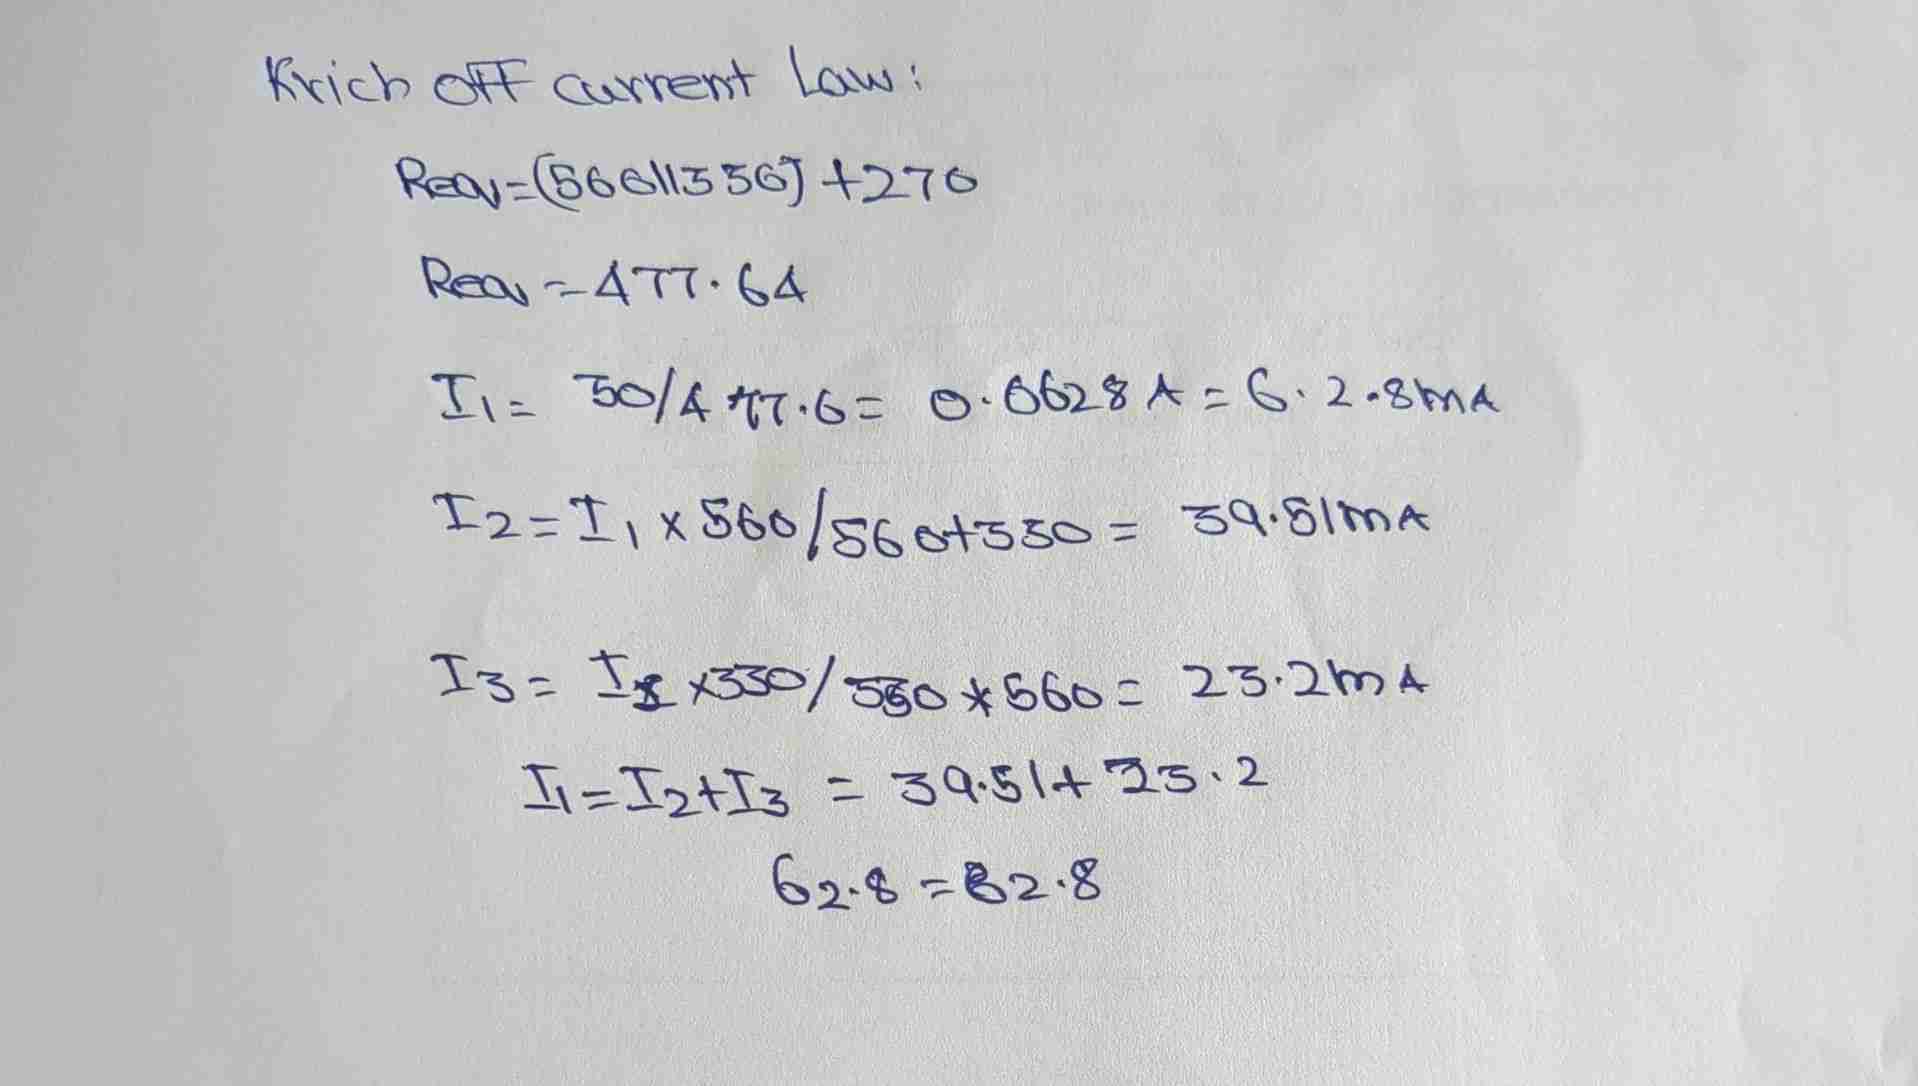 Krich off current Law:
Req=(560||330)+270
Req=477.64
I1= 30/477.6= 0.0628A=6.2.8mA
I2=I1×560/560+330= 39.51mA
I3= I1×330/330*560= 23.2mA
I1=I2+I3 = 39.51+23.2
62.8=62.8